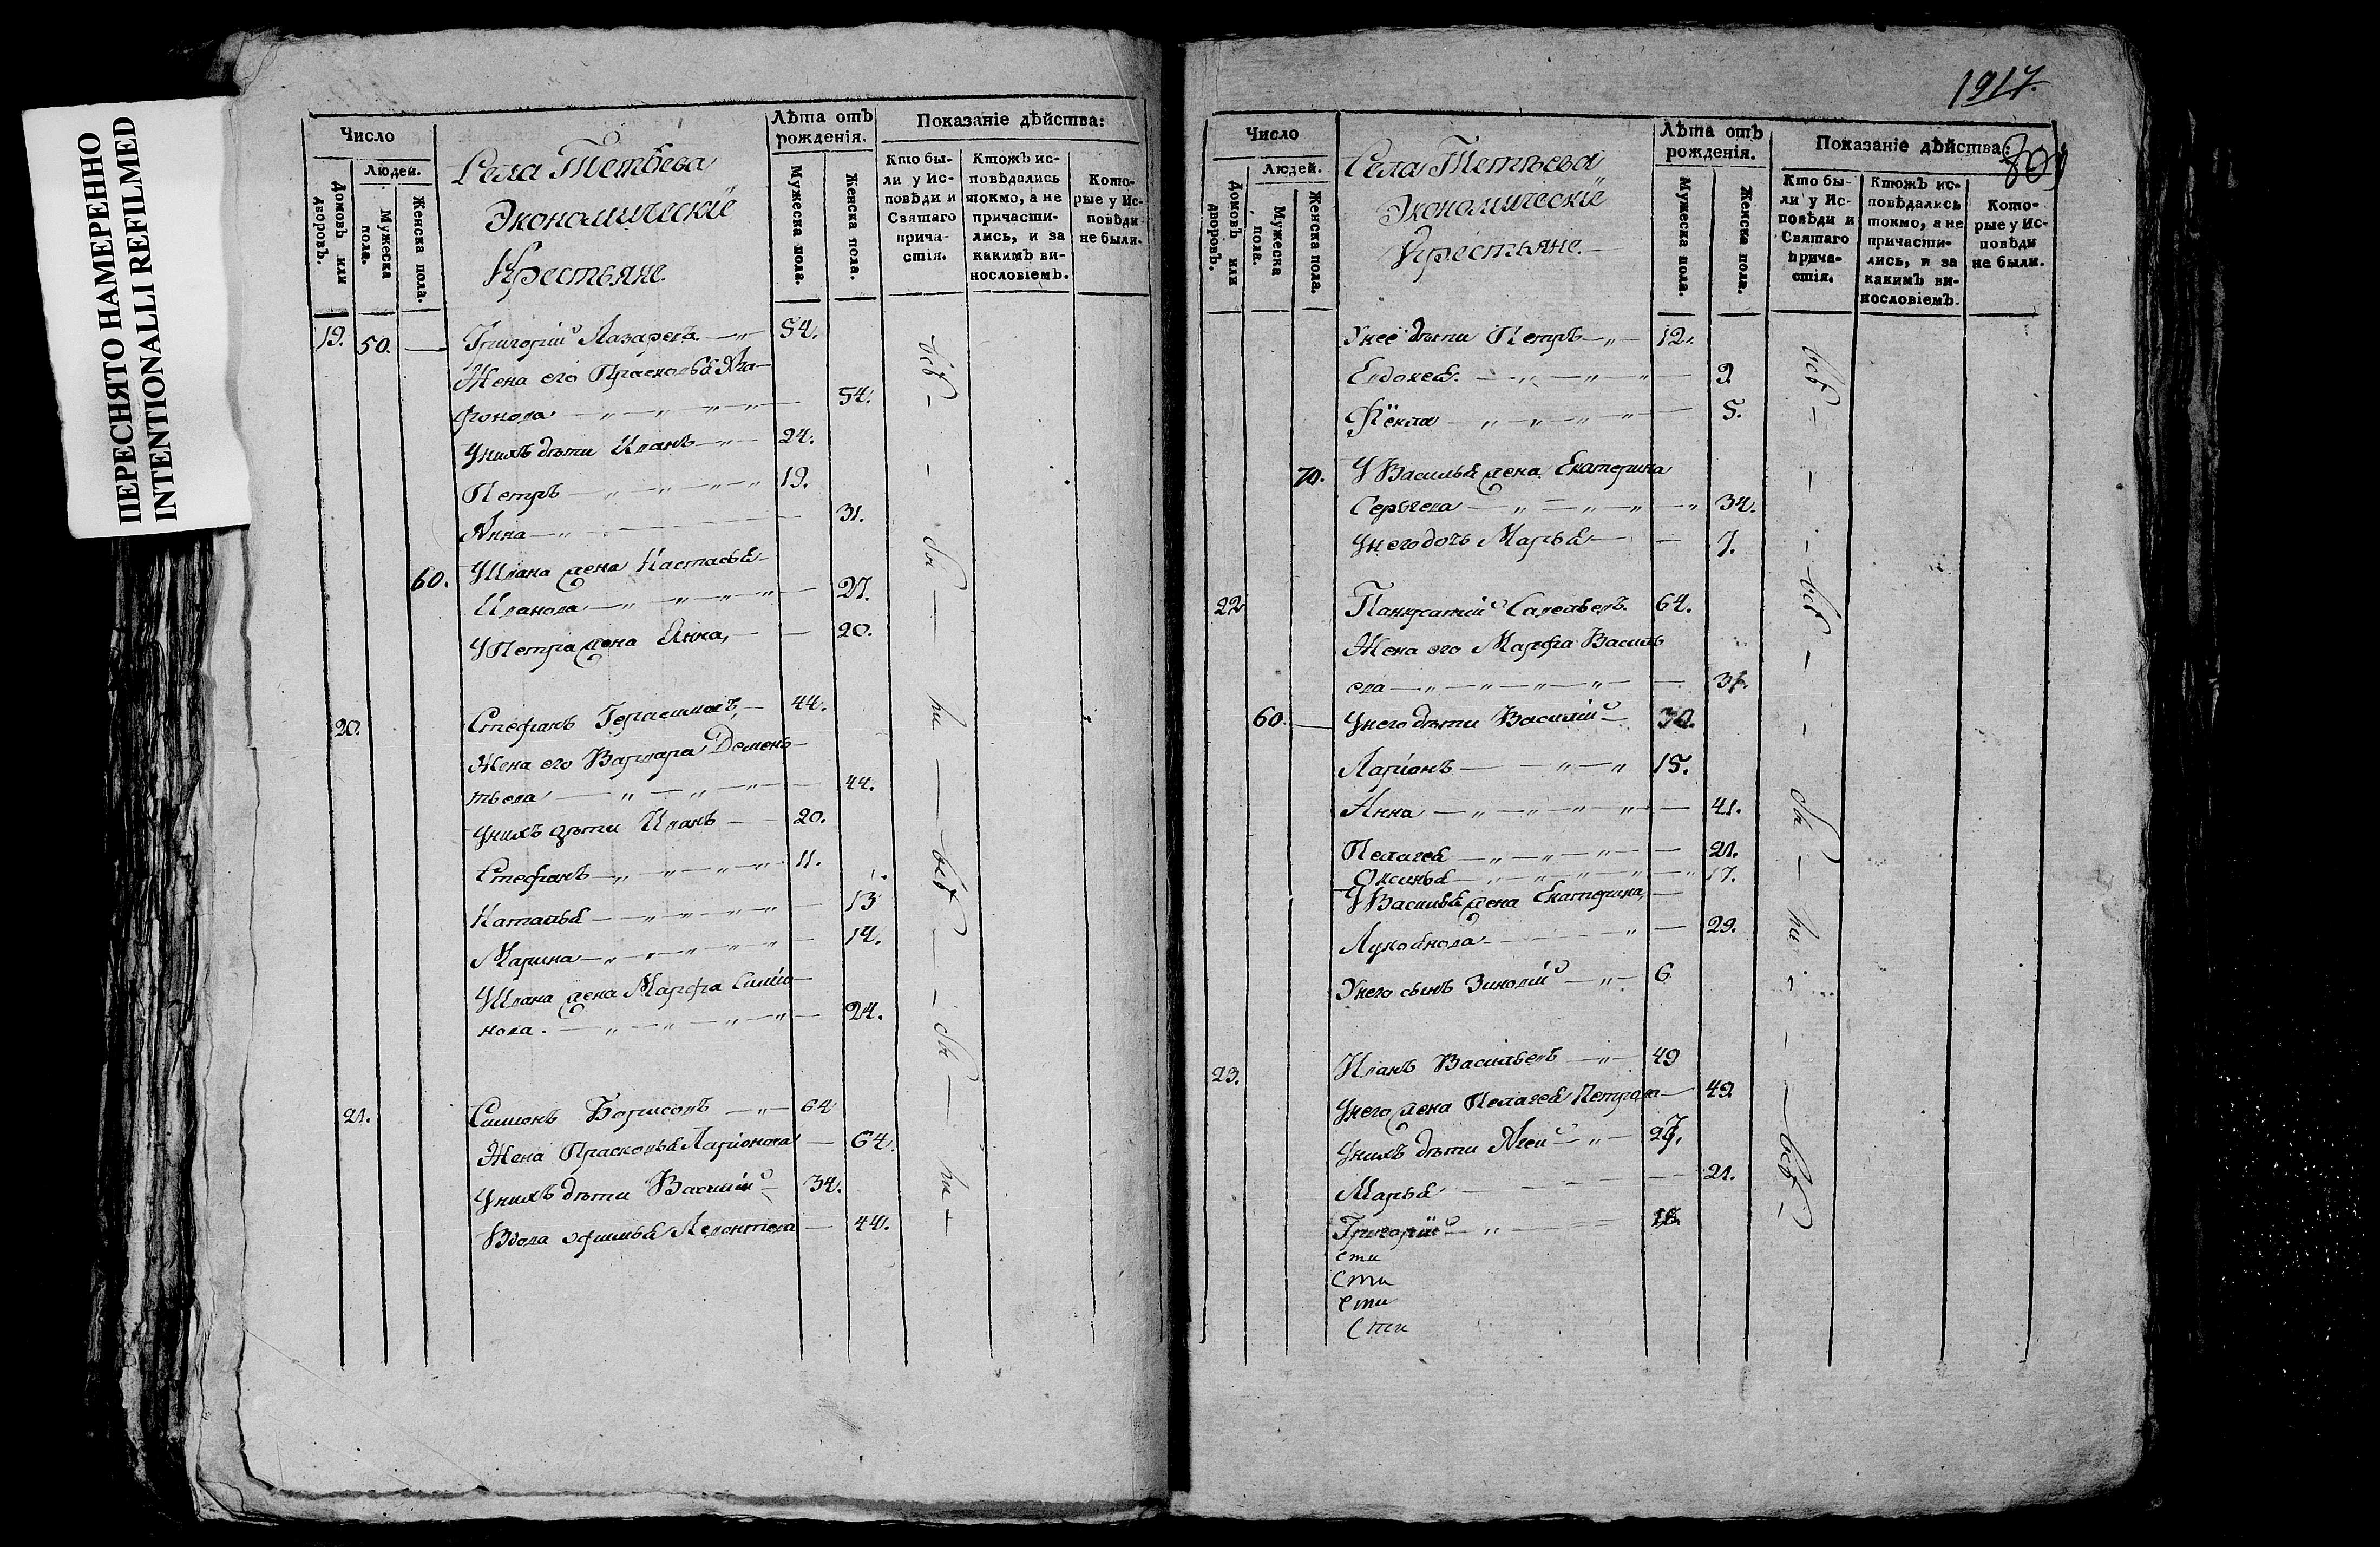 ПЕРЕСНЯТО НАМЕРЕННО
INTENTIONALLI REFILMED
Число
Людей.
Домовъ или дворовъ.
Мужеска пола.
Женска пола.
Села Тетѣева
Экономическїе
Крестьяне
Лѣта отъ рожденія.
Мужеска пола.
Женска пола.
Показаніе дѣйства:
Кто бы-
ли у Ис-
повѣди и
Святаго
прича-
стія.
Ктожъ ис-
повѣдались
токмо, а не
причасти-
лись, и за
какимъ ви-
нословіемъ.
Кото-
рые у Ис-
повѣди
не были.
19. 50. Григорій Лазаревъ 54.
Жена его Прасковья Ага-
фонова 54.
Унихъ дѣти Иванъ 24.
Петръ 19.
Анна 31.
60. УИвана жена Настасья
Иванова 27.
УПетра жена Анна, 20.
20. Стефанъ Герасимовъ, 44.
Жена его Варвара Демень-
тьева 44.
Унихъ дѣти Иванъ 20.
Стефанъ 11.
Наталья 13
Марина 14.
УИвана жена Марфа Симіо-
нова. 24.
21. Симионъ Борисовъ 64
Жена Прасковья Ларіонова 64.
Унихъ дѣти Василій 34.
Вдова Офимья Леонтьева 44.
всѣ
бы
ли
всѣ
бы
ли
1917.
Число
Людей.
Домовъ или дворовъ.
Мужеска пола.
Женска пола.
Села Тетѣева
Экономическїе
Крестьяне.
Лѣта отъ рожденія.
Мужеска пола.
Женска пола.
Показаніе дѣйства:
Кто бы-
ли у Ис-
повѣди и
Святаго
прича-
стія.
Ктожъ ис-
повѣдались
токмо, а не
причасти-
лись, и за
какимъ ви-
нословіемъ.
Кото-
рые у Ис-
повѣди
не были.
Унеё дѣти Петръ 12.
Евдокея.
Фёкла 5.
70. УВасилья жена Екатерина
Сергѣева 34.
Унего дочь Марья 7.
22 Панкратій Савельевъ. 64.
Жена его Марфа Василь
ева
60. Унего дѣти Василій 30.
Ларіонъ 15.
Анна 41.
Пелагея 21.
Оксинья 17.
УВасилья жена Екатерина,
Лукоянова 29.
Унего сынъ Зиновій 6
23. Иванъ Васильевъ 49
Унего жена Пелагея Петрова 49
Унихъ дѣти
Марья 21.
Григорій
сти
сти
сти
сти
всѣ
всѣ
бы
ли
всѣ